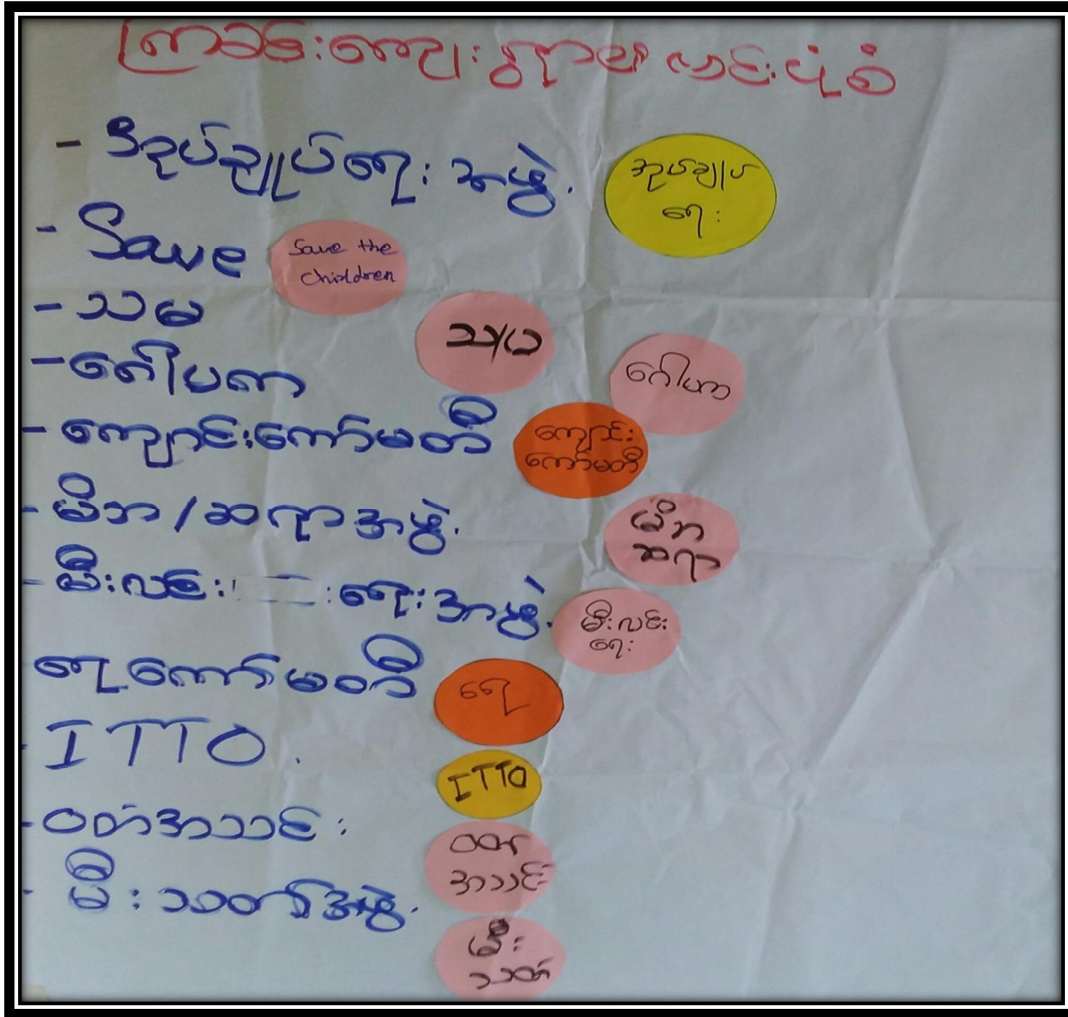 ကြာခမ်းကျေးရွာ၏ လင်းပုံစံ
- အုပ်ချုပ်ရေး အဖွဲ့.
အုပ်ချုပ်
ရေး
- Save
Save the
Children
- သမ
သမ
- ဂေါပက
ဂေါပက
- ကျောင်းကော်မတီ
ကျောင်း
ကော်မတီ
- မိဘ / ဆရာအဖွဲ့.
မိဘ
ဆရာ
- မီးလင်း ရေးအဖွဲ့.
မီးလင်း
ရေး
ရေကော်မတီ
ရေ
- ITTO.
ITTO
- ဝတ်အသင်း
ဝတ်
အသင်း
- မီးသတ်အဖွဲ့.
မီး
သတ်